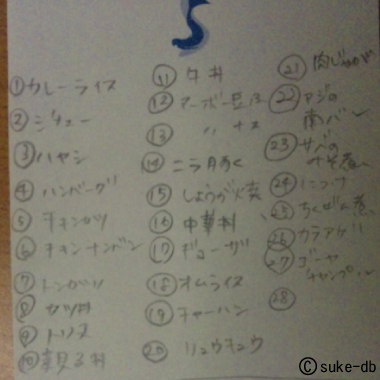 5
①カレーライス
②シチュー
③ハヤシ
④ハンバーグ
⑤チキンカツ
⑥チキンナンバン
⑦トンカツ
⑧カツ丼
⑨
⑩親子丼
⑪牛丼
⑫マーボー豆フ
⑬〃ナス
⑭ニラ豚
⑮しょうが焼
⑯中華
⑰ギョーザ
⑱オムライス
⑲チャーハン
⑳リュウキュウ
㉑肉じゃが
㉒アジの
南バン
㉓サバの
みそ煮
㉔
㉕ちくぜん煮
㉖カラアゲ
㉗ゴーヤ
チャンプル
㉘
©suke-db